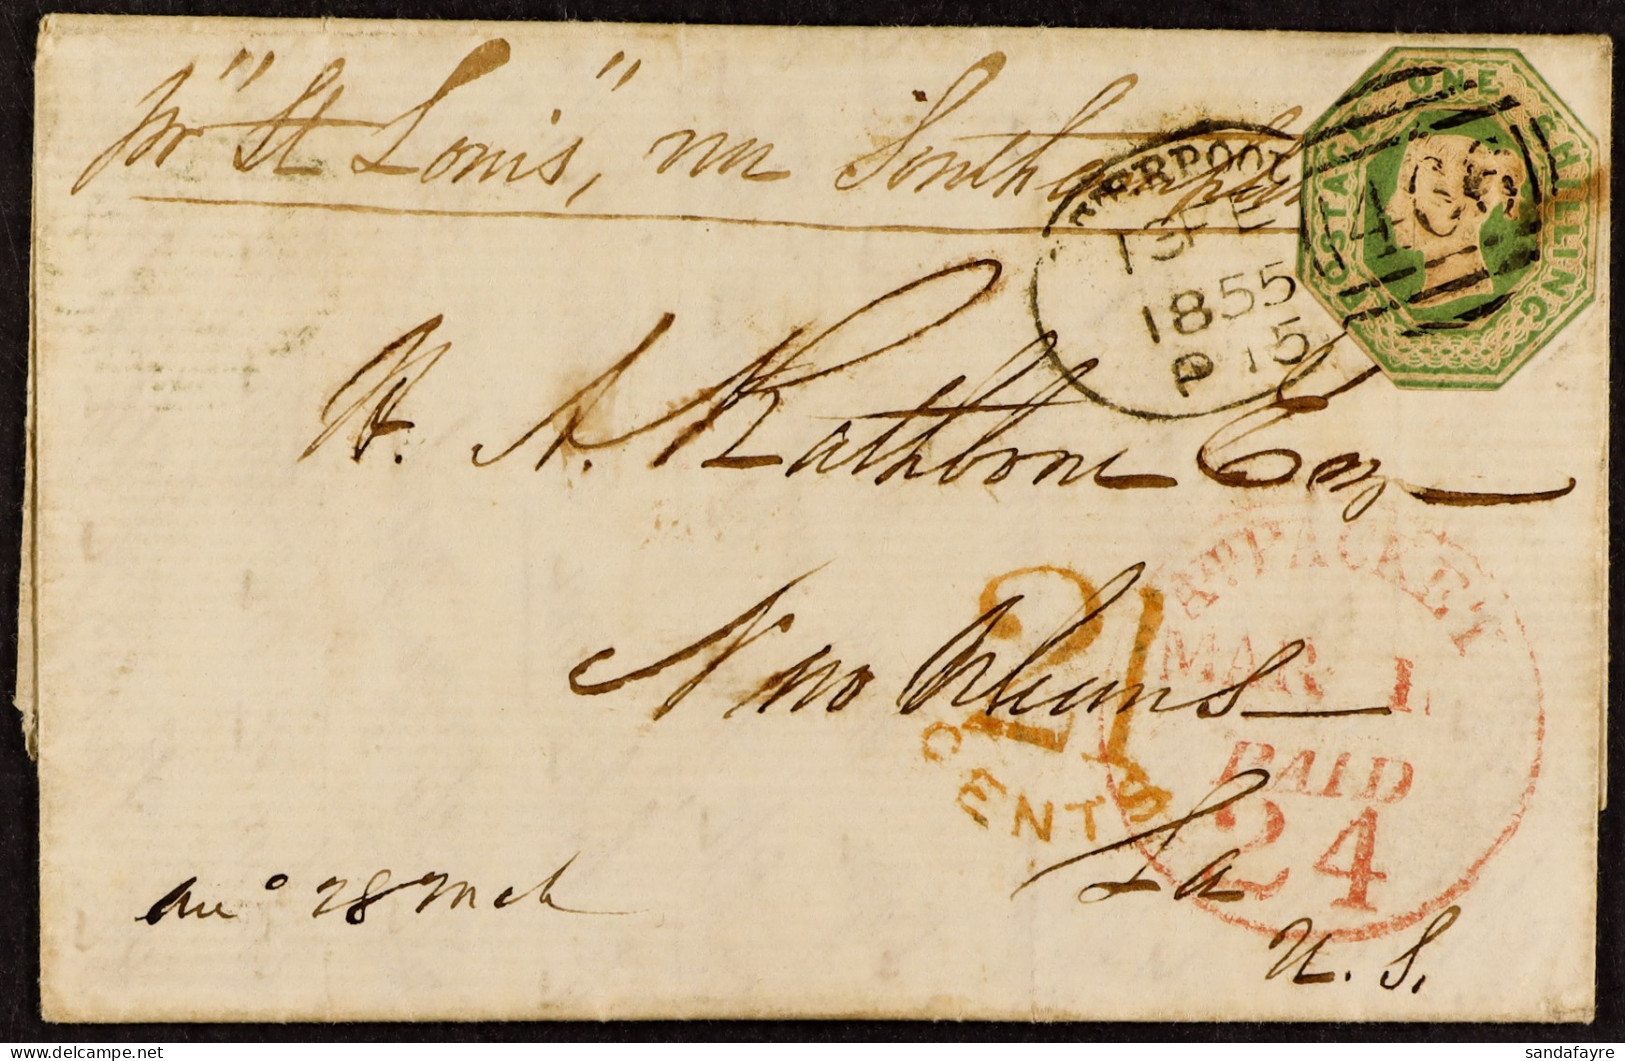 pr "St Louis", via Southampton
POSTAGE ONE SHILLING
LIVERPOOL
13 FE
1855
P 15
466
H. A. Rathbone Esq
New Orleans
La
U. S.
21
CENTS
PACKET
MAR 1
PAID
24
28 Mch
sandafayre